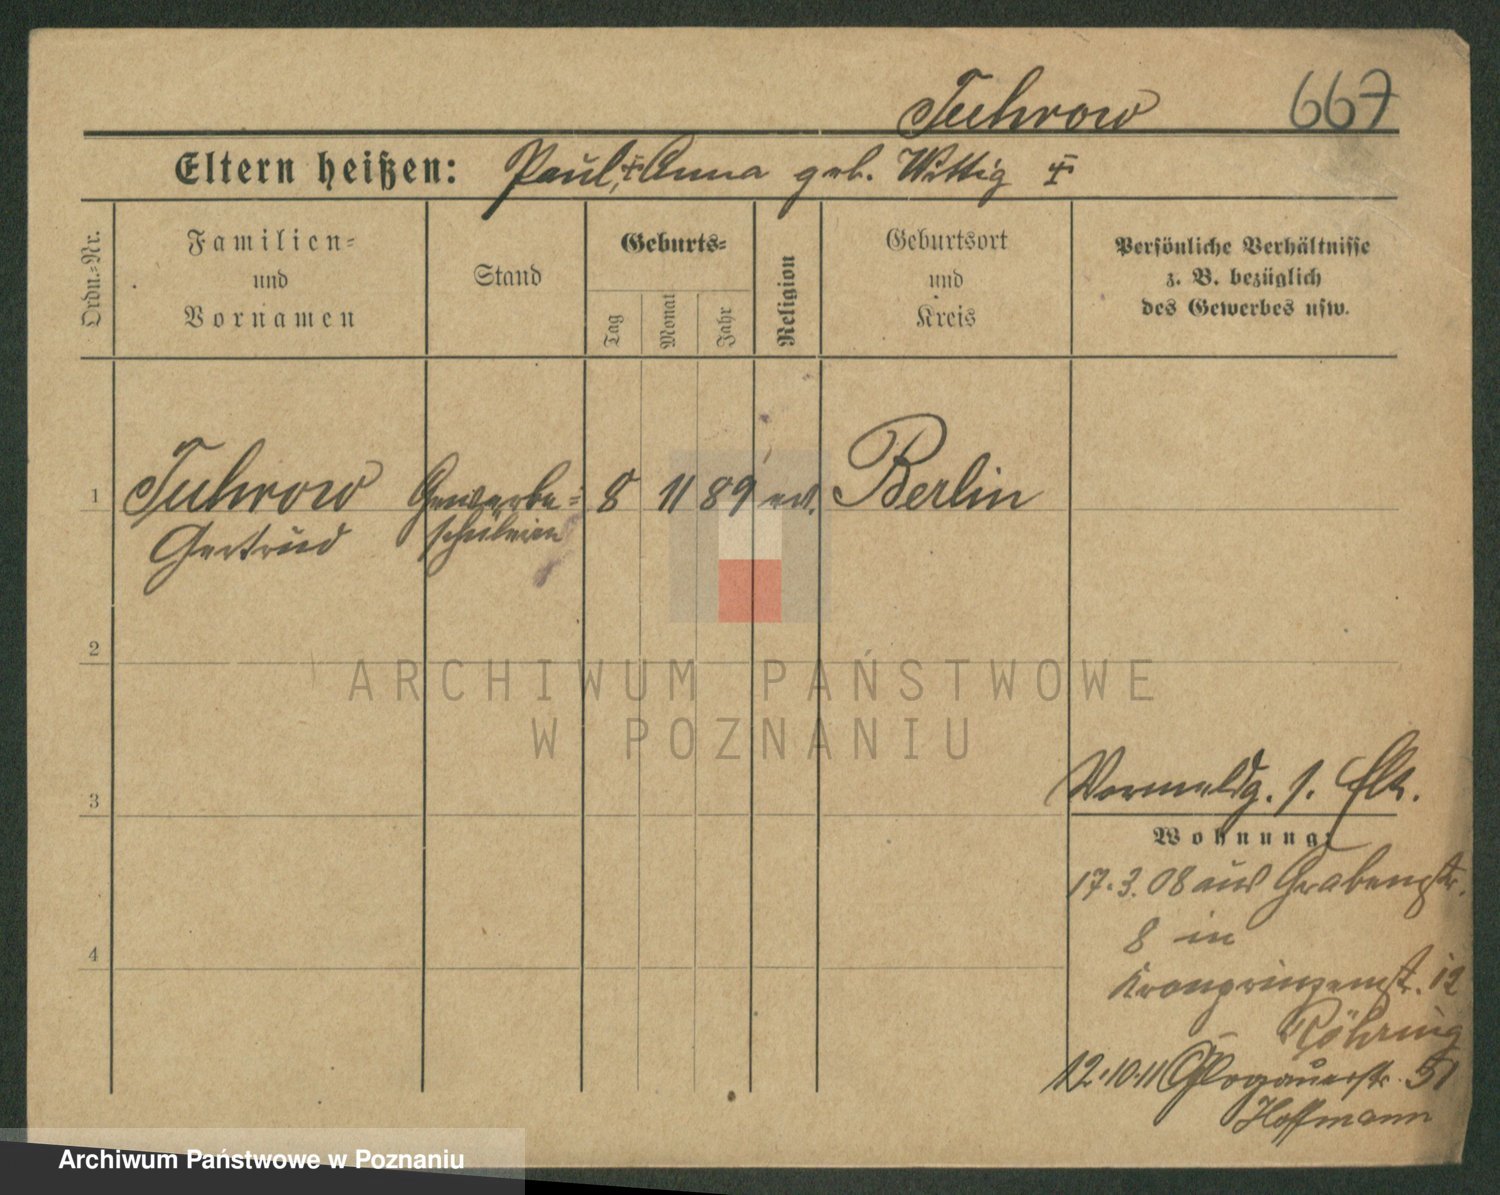 Tuhrow 667
Eltern heißen: Paul, ‡ Anna geb. Wittig ‡
Ordn.=Nr.
Familien=
und
Vornamen
Stand
Geburts=
Tag
Monat
Jahr
Religion
Geburtsort
und
Kreis
Persönliche Verhältnisse
z. B. bezüglich
des Gewerbes usw.
1 Tuhrow Gewerbe= 8 11 89 ev. Berlin
Gertrud schülerin
2
3
4
Vormeldg. s. Elt.
Wohnung:
17.3.08 aus Grabenstr.
8 in
Kronprinzenstr. 12
Röhring
12.10.11 Glogauerstr. 51
Hoffmann
ARCHIWUM PAŃSTWOWE
W POZNANIU
Archiwum Państwowe w Poznaniu